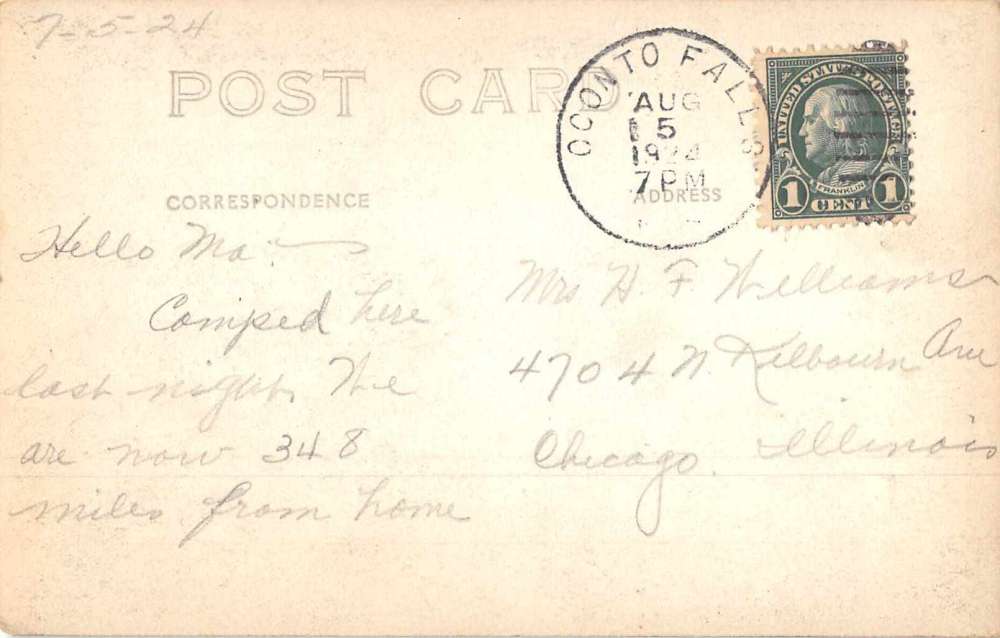 7-5-24
POST CARD
OCONTO FALLS
AUG
5
1924
7 PM
UNITED STATES POSTAGE
FRANKLIN
1 CENT 1
CORRESPONDENCE
ADDRESS
Hello Ma.—
Comped here
last night. We
are now 348
miles from home
Mrs H. F. Williams
4704 N. Kilbourn Ave
Chicago. Illinois